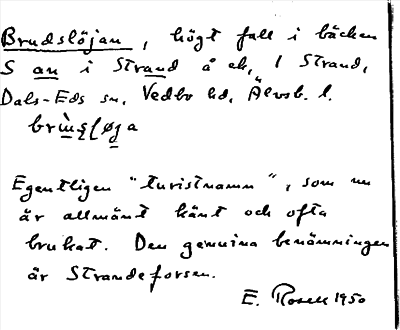 Brudslöjan, högt fall i bäcken
S an i Strand å ek, 1 Strand,
Dals-Eds sn, Vedbo hd, Älvsb. l.
Egentligen "turistnamn", som nu
är allmänt känt och ofta
brukat. Den genuina benämningen
är Strandeforsen.
E. Rosell 1950